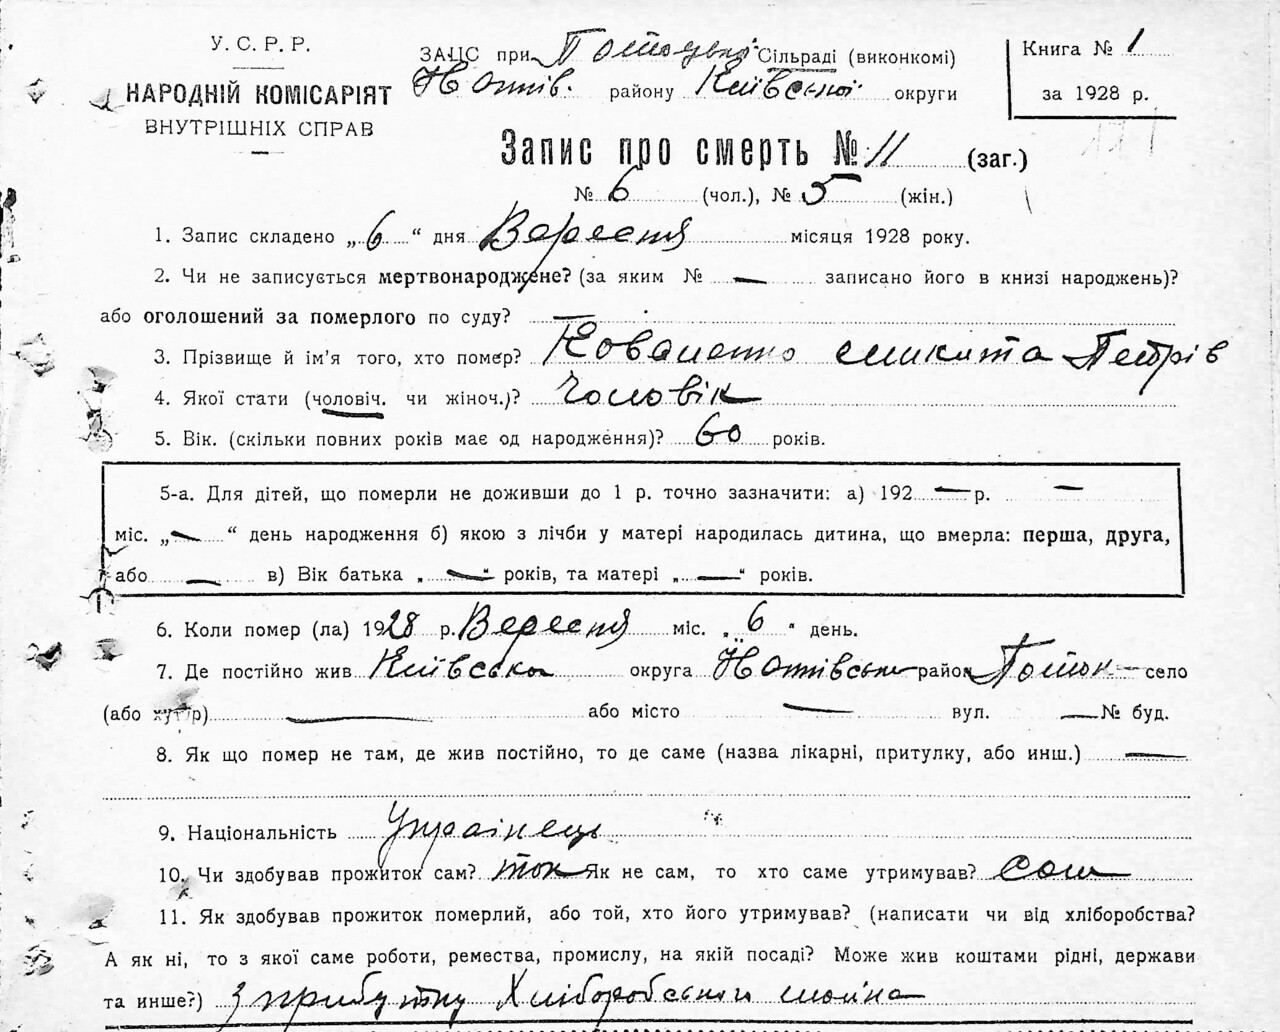 У. С. Р. Р.
НАРОДНІЙ КОМІСАРІЯТ
ВНУТРІШНІХ СПРАВ
ЗАЦС при Потоцькі Сільраді (виконкомі)
району Київської округи
Книга № 1
за 1928 р.
Запис про смерть № 11 (заг.)
№ 6 (чол.), № 5 (жін.)
1. Запис складено „ 6 “ дня Вересня місяця 1928 року.
2. Чи не записується мертвонароджене? (за яким № — записано його в книзі народжень)?
або оголошений за померлого по суду? —
3. Прізвище й ім’я того, хто помер? Коваленко Микита Петрів
4. Якої статі (чоловіч. чи жіноч.)? Чоловік
5. Вік. (скільки повних років має од народження)? 60 років.
5-а. Для дітей, що померли не доживши до 1 р. точно зазначити: а) 192 — р. —
міс. „ — “ день народження б) якою з лічби у матері народилась дитина, що вмерла: перша, друга,
або — в) Вік батька „ — “ років, та матері „ — “ років.
6. Коли помер (ла) 1928 р. Вересня міс. „ 6 “ день.
7. Де постійно жив Київська округа район Поток — село
(або хутір) — або місто — вул. — № буд.
8. Як що помер не там, де жив постійно, то де саме (назва лікарні, притулку, або инш.) —
9. Національність Українець
10. Чи здобував прожиток сам? так Як не сам, то хто саме утримував? сам
11. Як здобував прожиток померлий, або той, хто його утримував? (написати чи від хліборобства?
А як ні, то з якої саме роботи, ремества, промислу, на якій посаді? Може жив коштами рідні, держави
та инше?) З прибутку Хліборобського